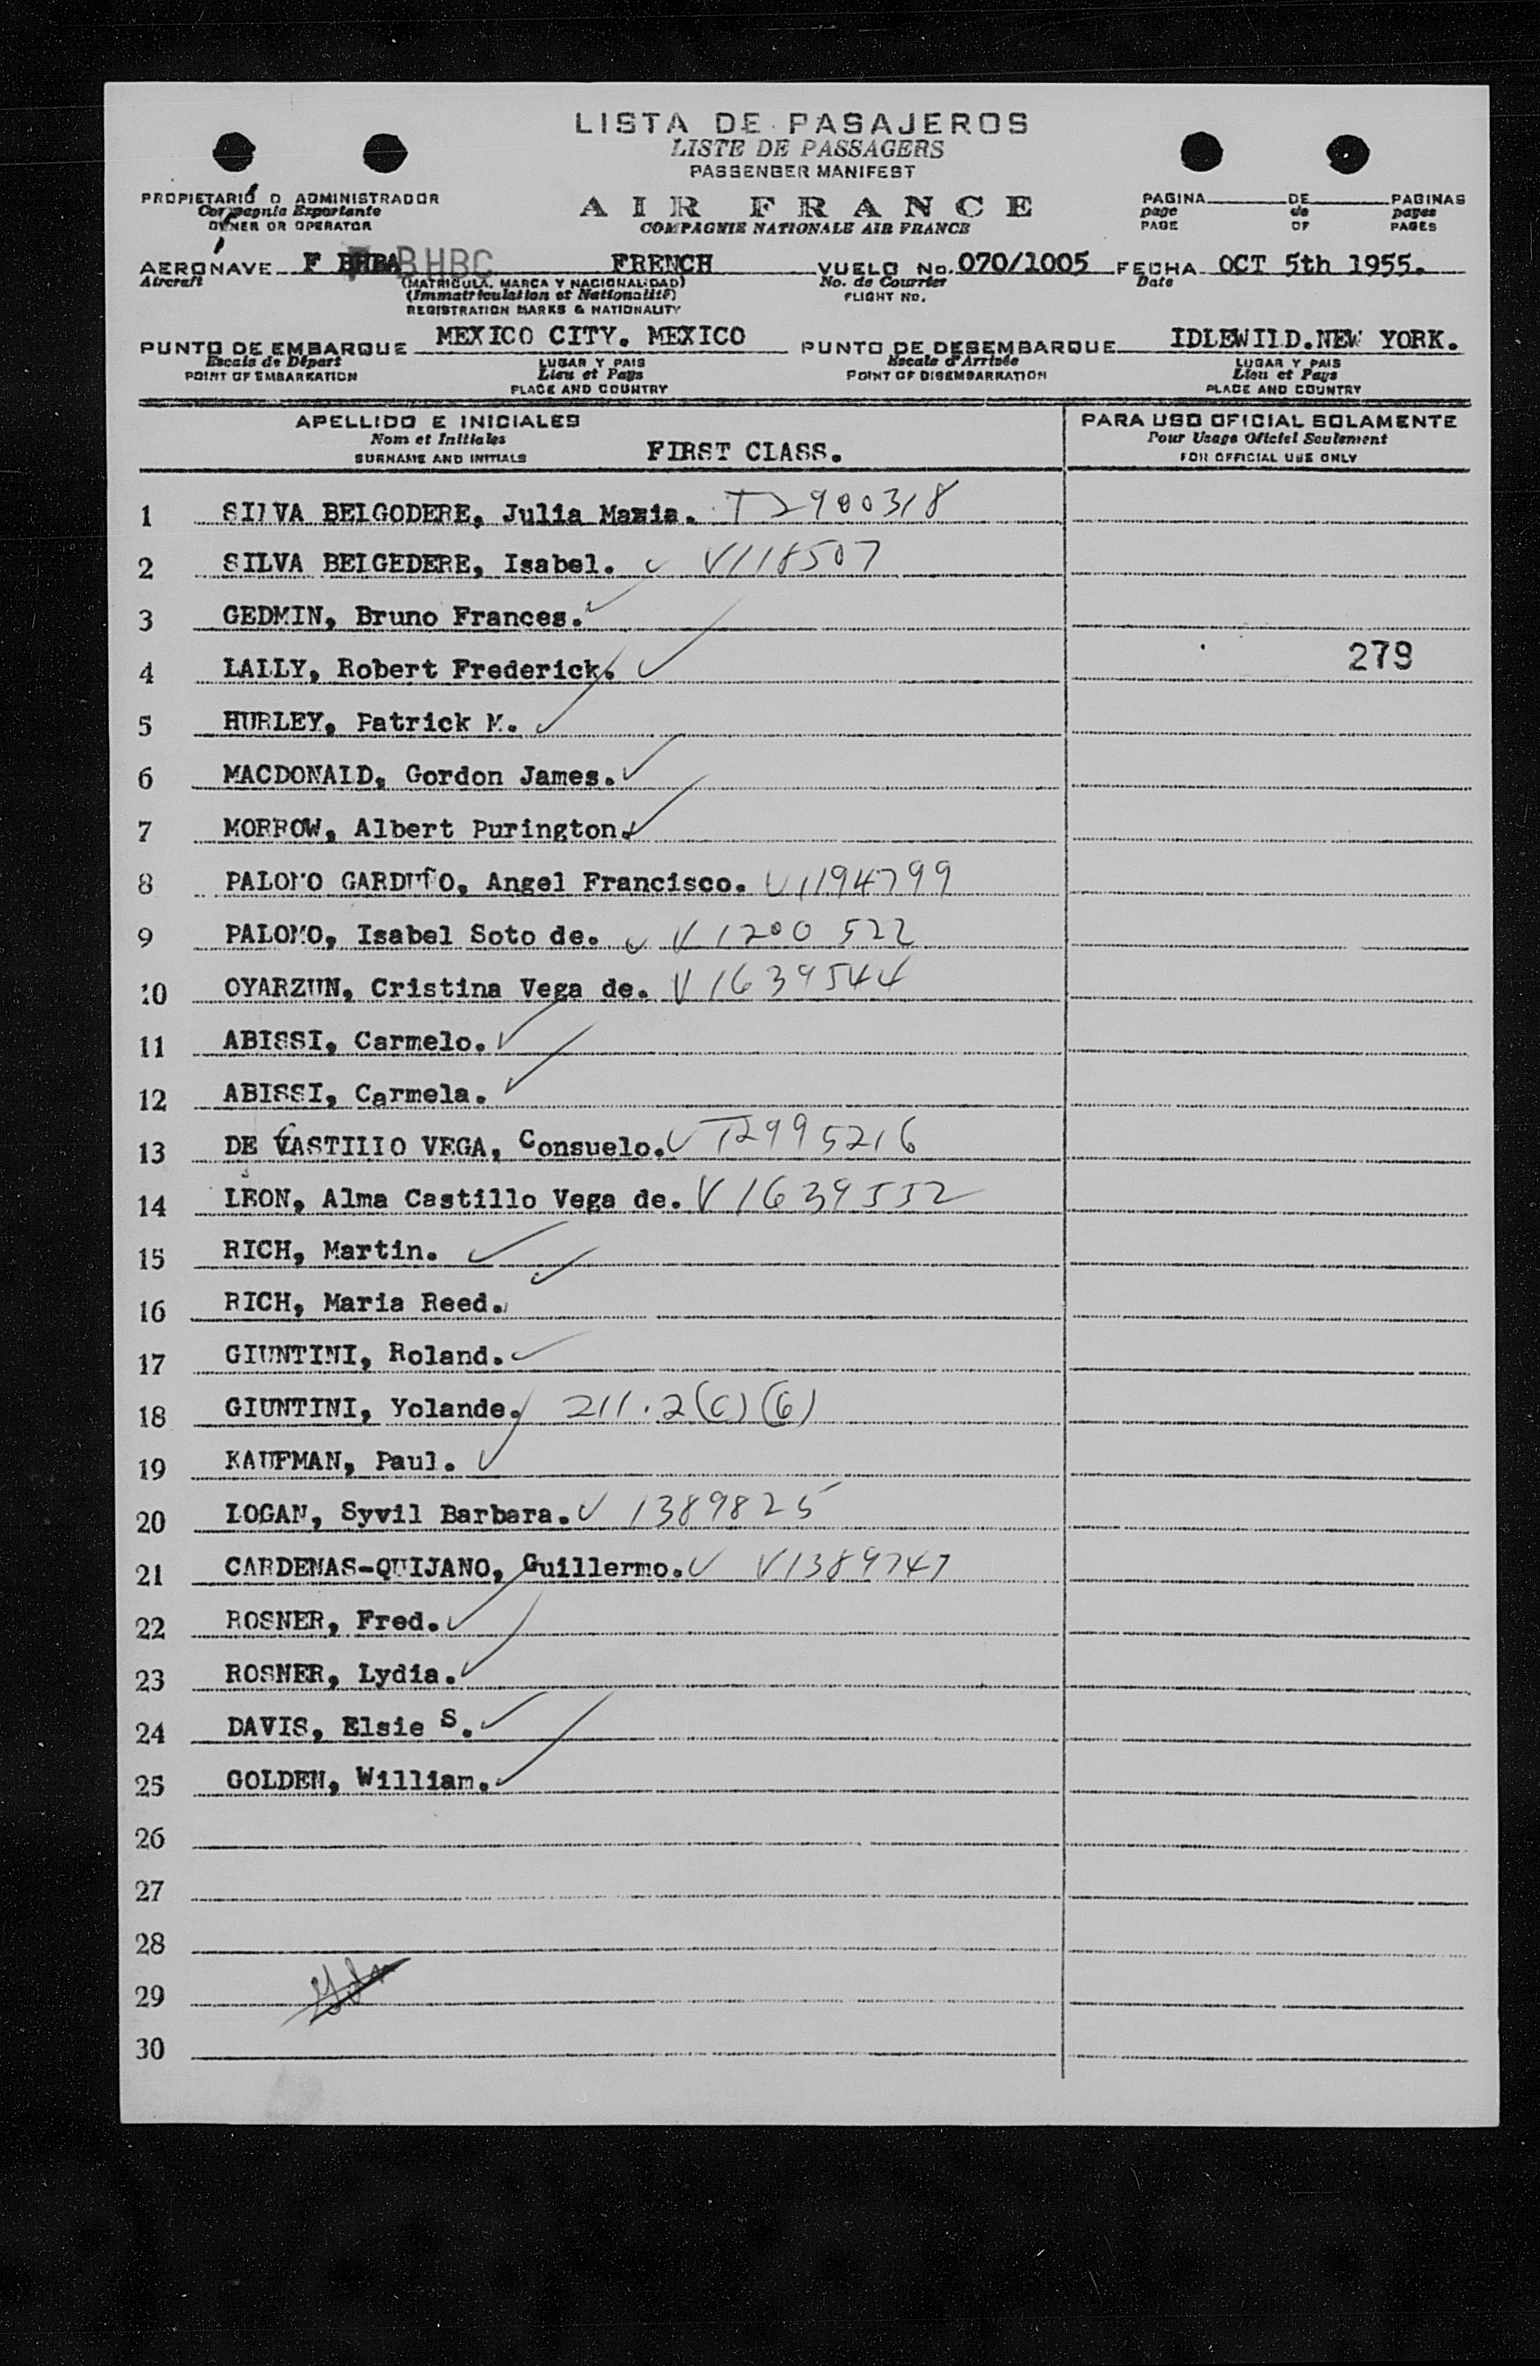 LISTA DE PASAJEROS
LISTE DE PASSAGERS
PASSENGER MANIFEST
PROPIETARIO O ADMINISTRADOR
Compagnie Exportante
OWNER OR OPERATOR
AIR FRANCE
COMPAGNIE NATIONALE AIR FRANCE
PAGINA DE PAGINAS
page de pages
PAGE OF PAGES
AERONAVE F BHBA BHBC FRENCH VUELO No. 070/1005 FECHA OCT 5th 1955.
Aircraft (MATRICULA, MARCA Y NACIONALIDAD) No. de Courrier Date
(Immatriculation et Nationalité) FLIGHT No.
REGISTRATION MARKS & NATIONALITY
PUNTO DE EMBARQUE MEXICO CITY. MEXICO PUNTO DE DESEMBARQUE IDLEWILD.NEW YORK.
Escala de Départ LUGAR Y PAIS Escale d'Arrivée LUGAR Y PAIS
POINT OF EMBARKATION Lieu et Pays POINT OF DISEMBARKATION Lieu et Pays
PLACE AND COUNTRY PLACE AND COUNTRY
APELLIDO E INICIALES PARA USO OFICIAL SOLAMENTE
Nom et Initiales Pour Usage Officiel Seulement
SURNAME AND INITIALS FIRST CLASS. FOR OFFICIAL USE ONLY
1 SILVA BELGODERE, Julia Maria. T2900318
2 SILVA BELGEDERE, Isabel. V118507
3 GEDMIN, Bruno Frances.
4 LALLY, Robert Frederick. 279
5 HURLEY, Patrick M.
6 MACDONALD, Gordon James.
7 MORROW, Albert Purington.
8 PALOMO GARDUÑO, Angel Francisco. V1194799
9 PALOMO, Isabel Soto de. V1200522
10 OYARZUN, Cristina Vega de. V1639544
11 ABISSI, Carmelo.
12 ABISSI, Carmela.
13 DE CASTILLO VEGA, Consuelo. T2995216
14 LEON, Alma Castillo Vega de. V1639552
15 RICH, Martin.
16 RICH, Maria Reed.
17 GIUNTINI, Roland.
18 GIUNTINI, Yolande. 211.2(C)(6)
19 KAUFMAN, Paul.
20 LOGAN, Syvil Barbara. V 1389825
21 CARDENAS-QUIJANO, Guillermo. V1389747
22 ROSNER, Fred.
23 ROSNER, Lydia.
24 DAVIS, Elsie S.
25 GOLDEN, William.
26
27
28
29
30